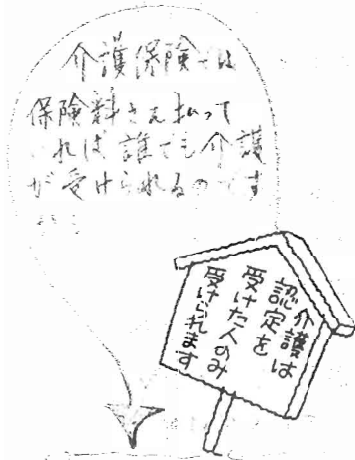 介護保険では
保険料さえ払って
れば誰でも介護
が受けられるのです
介護は
認定を
受けた人のみ
受けられます